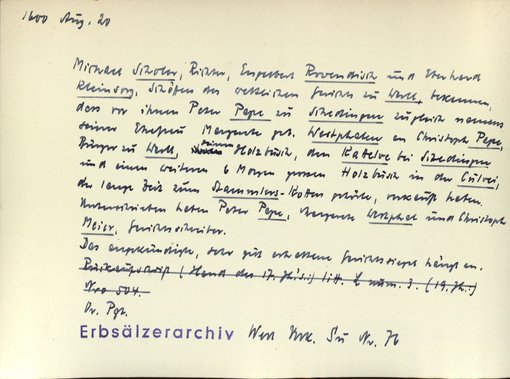 1600 Aug. 20
Michael Scholer, Richter, Engelbert Rovendisch und Eberhard
Kleinsorg, Schöffen des weltlichen Gerichts zu Werl, bekennen,
dass vor ihnen Peter Pape zu Scheidingen zugleich namens
seiner Ehefrau Margarete geb. Westphalen an Christoph Pape,
Bürger zu Werl, einen Holzbusch, den Katelve bei Scheidingen
und einen weiteren 6 Morgen grossen Holzbusch in der Cülvei,
der lange Zeit zum Stammlers-Kotten gehörte, verkauft haben.
Unterschrieben haben Peter Pape, Margarete Westphal und Christoph
Meier, Gerichtsschreiber.
Das angekündigte, sehr gut erhaltene Gerichtssiegel hängt an.
Rückaufschrift (Hand des 17. Jh's.) litt. L num. 3. (19. Jh.)
Nro 504.
Or. Pgt.
Erbsälzerarchiv Werl Urk. Su Nr. 76